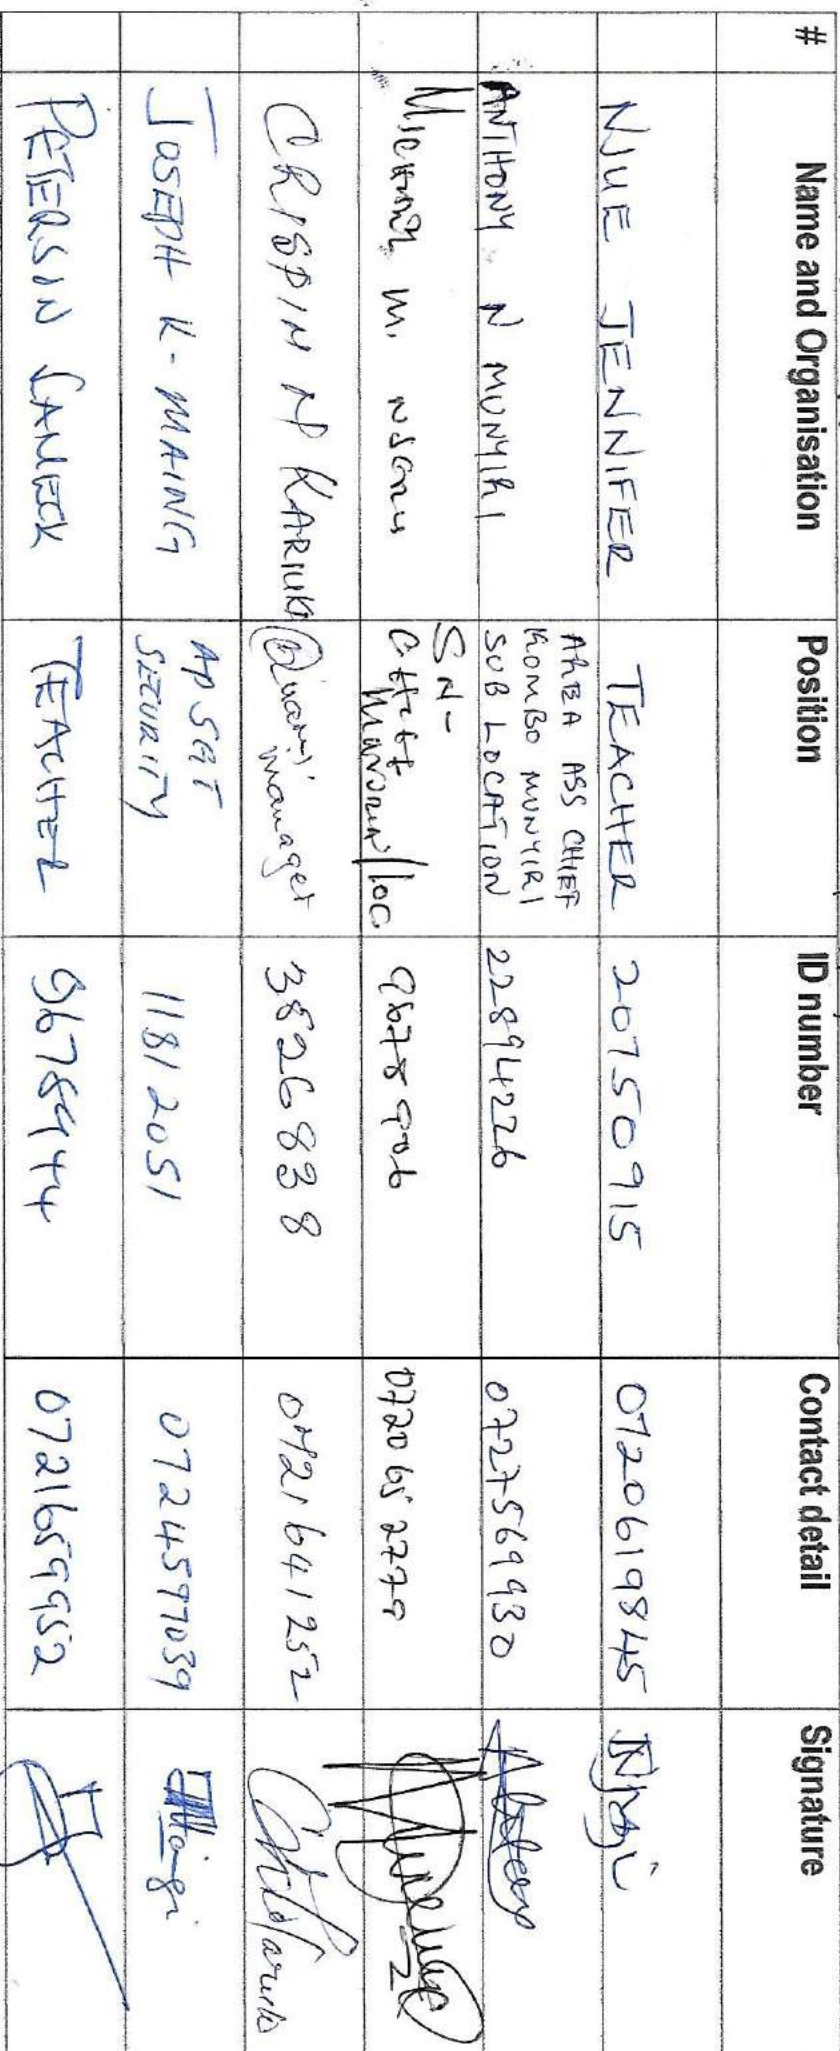 # Name and Organisation Position ID number Contact detail Signature
NJUE JENNIFER TEACHER 20750915 0720619845
ANTHONY N MUNYIRI AREA ASS CHIEF
KOMBO MUNYIRI
SUB LOCATION 22894226 0727569930
M. SN-
CHIEF
/loc 9678906 0720652779
CRISPIN N KARIUKI manager 3826838 0721641252
JOSEPH K- MAING AP SGT
SECURITY 11812051 0724597039
PETERSON TEACHER 9678944 0721659952